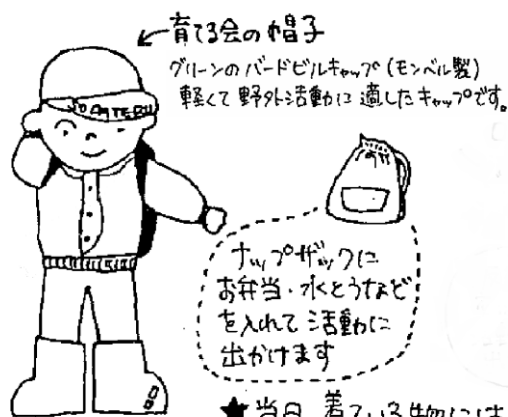 育てる会の帽子
グリーンのバードビルキャップ(モンベル製)
軽くて野外活動に適したキャップです。
SODATERU
ナップザックに
お弁当・水とうなど
を入れて活動に
出かけます
★当日着ている物には